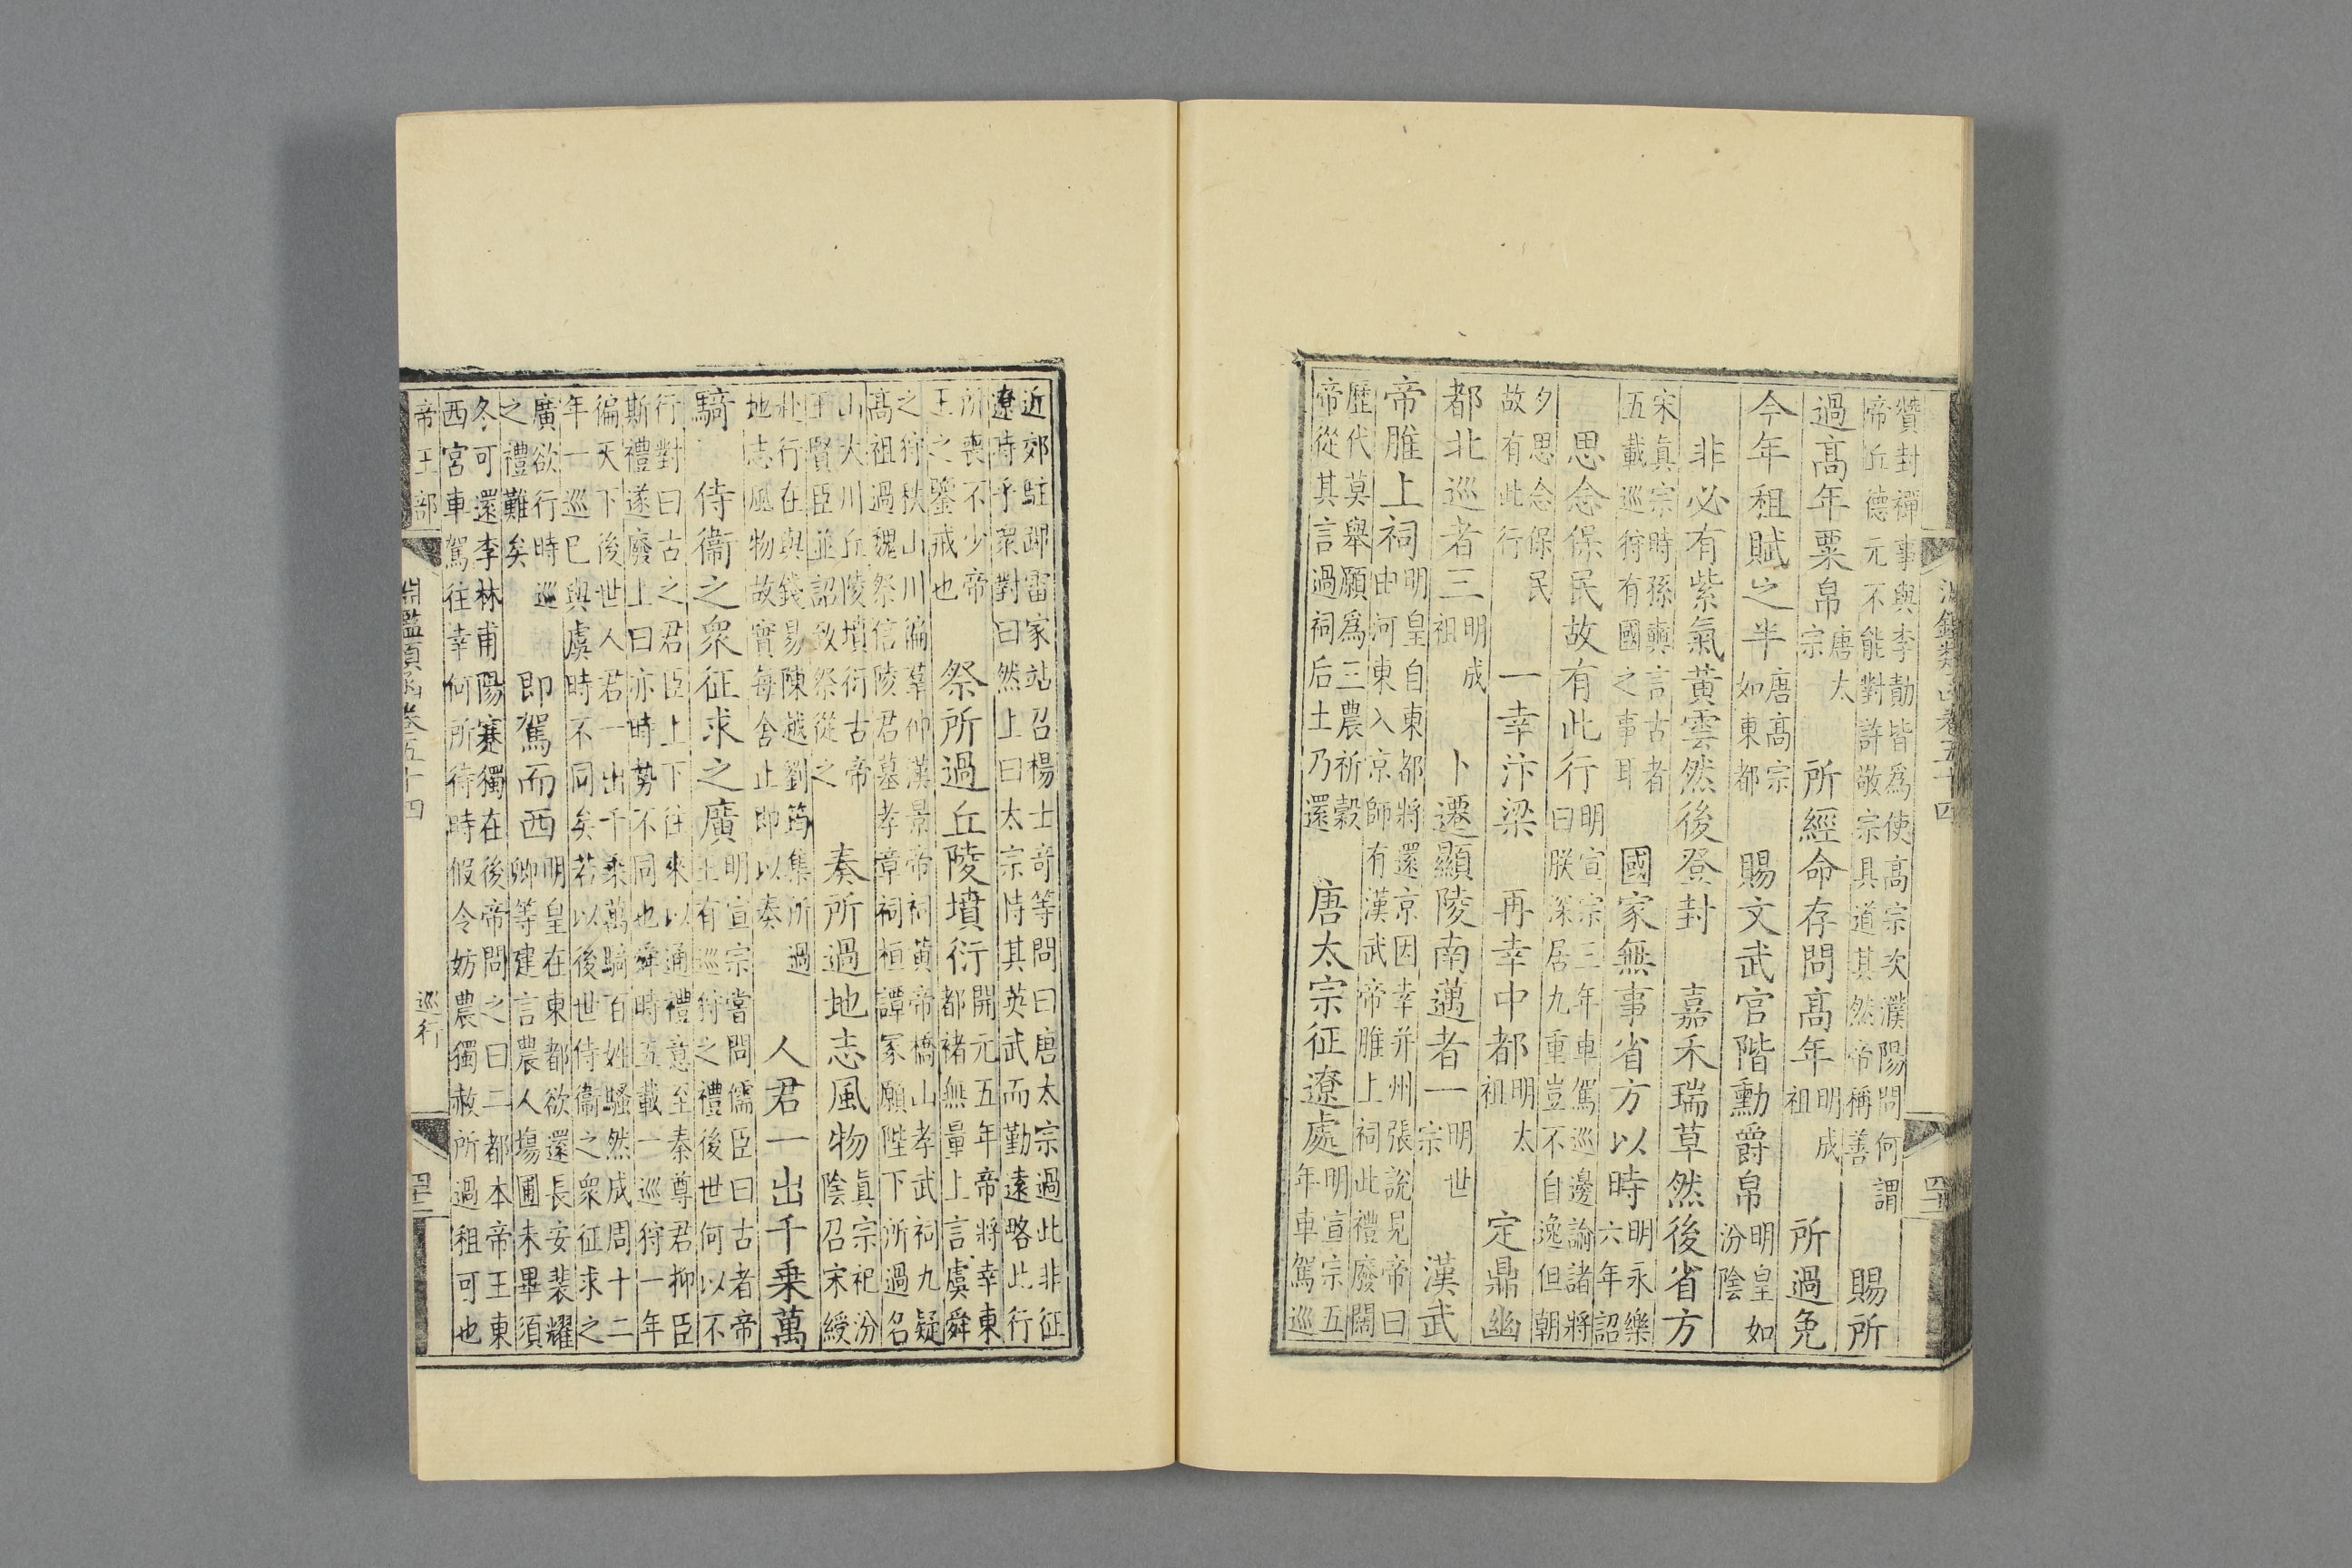 淵鑑類函卷五十四
四十二
贊封禪事與李勣皆爲使高宗次濮陽問何謂
帝丘德元不能對許敬宗具道其然帝稱善
賜所
過高年粟帛
唐太
宗
所經命存問高年
明成
祖
所過免
今年租賦之半
唐高宗
如東都
賜文武官階勳爵帛
明皇如
汾陰
非必有紫氣黃雲然後登封 嘉禾瑞草然後省方
宋真宗時孫奭言古者
五載巡狩有國之事耳
國家無事省方以時
明永樂
六年詔
思念保民故有此行
明宣宗三年車駕巡邊諭諸將
曰朕深居九重豈不自逸但朝
夕思念保民
故有此行
一幸汴梁 再幸中都
明太
祖
定鼎幽
都北巡者三
明成
祖
卜遷顯陵南邁者一
明世
宗
漢武
帝脽上祠
明皇自東都將還京因幸并州張說見帝曰
由河東入京師有漢武帝脽上祠此禮廢闕
歷代莫舉願爲三農祈穀
帝從其言過祠后土乃還
唐太宗征遼處
明宣宗五
年車駕巡
近郊駐蹕雷家站召楊士奇等問曰唐太宗過此非征
遼時乎衆對曰然上曰太宗恃其英武而勤遠略此行
所喪不少帝
王之鑒戒也
祭所過丘陵墳衍
開元五年帝將幸東
都褚無量上言虞舜
之狩秩山川徧羣神漢景帝祠黃帝橋山孝武祠九疑
高祖過魏祭信陵君墓孝章祠桓譚冢願陛下所過名
山大川丘陵墳衍古帝
王賢臣並詔致祭從之
奏所過地志風物
真宗祀汾
陰召宋綬
赴行在與錢易陳越劉筠集所過
地志風物故實每舍止即以奏
人君一出千乘萬
騎 侍衞之衆征求之廣
明宣宗嘗問儒臣曰古者帝
王有巡狩之禮後世何以不
行對曰古之君臣上下往來以通禮意至秦尊君抑臣
斯禮遂廢上曰亦時勢不同也舜時五載一巡狩一年
徧天下後世人君一出千乘萬騎百姓騷然成周十二
年一巡已與虞時不同矣若以後世侍衞之衆征求之
廣欲行時巡
之禮難矣
即駕而西
明皇在東都欲還長安裴耀
卿等建言農人塲圃未畢須
冬可還李林甫陽蹇獨在後帝問之曰二都本帝王東
西宮車駕往幸何所待時假令妨農獨赦所過租可也
帝王部
淵鑑類函卷五十四
巡行